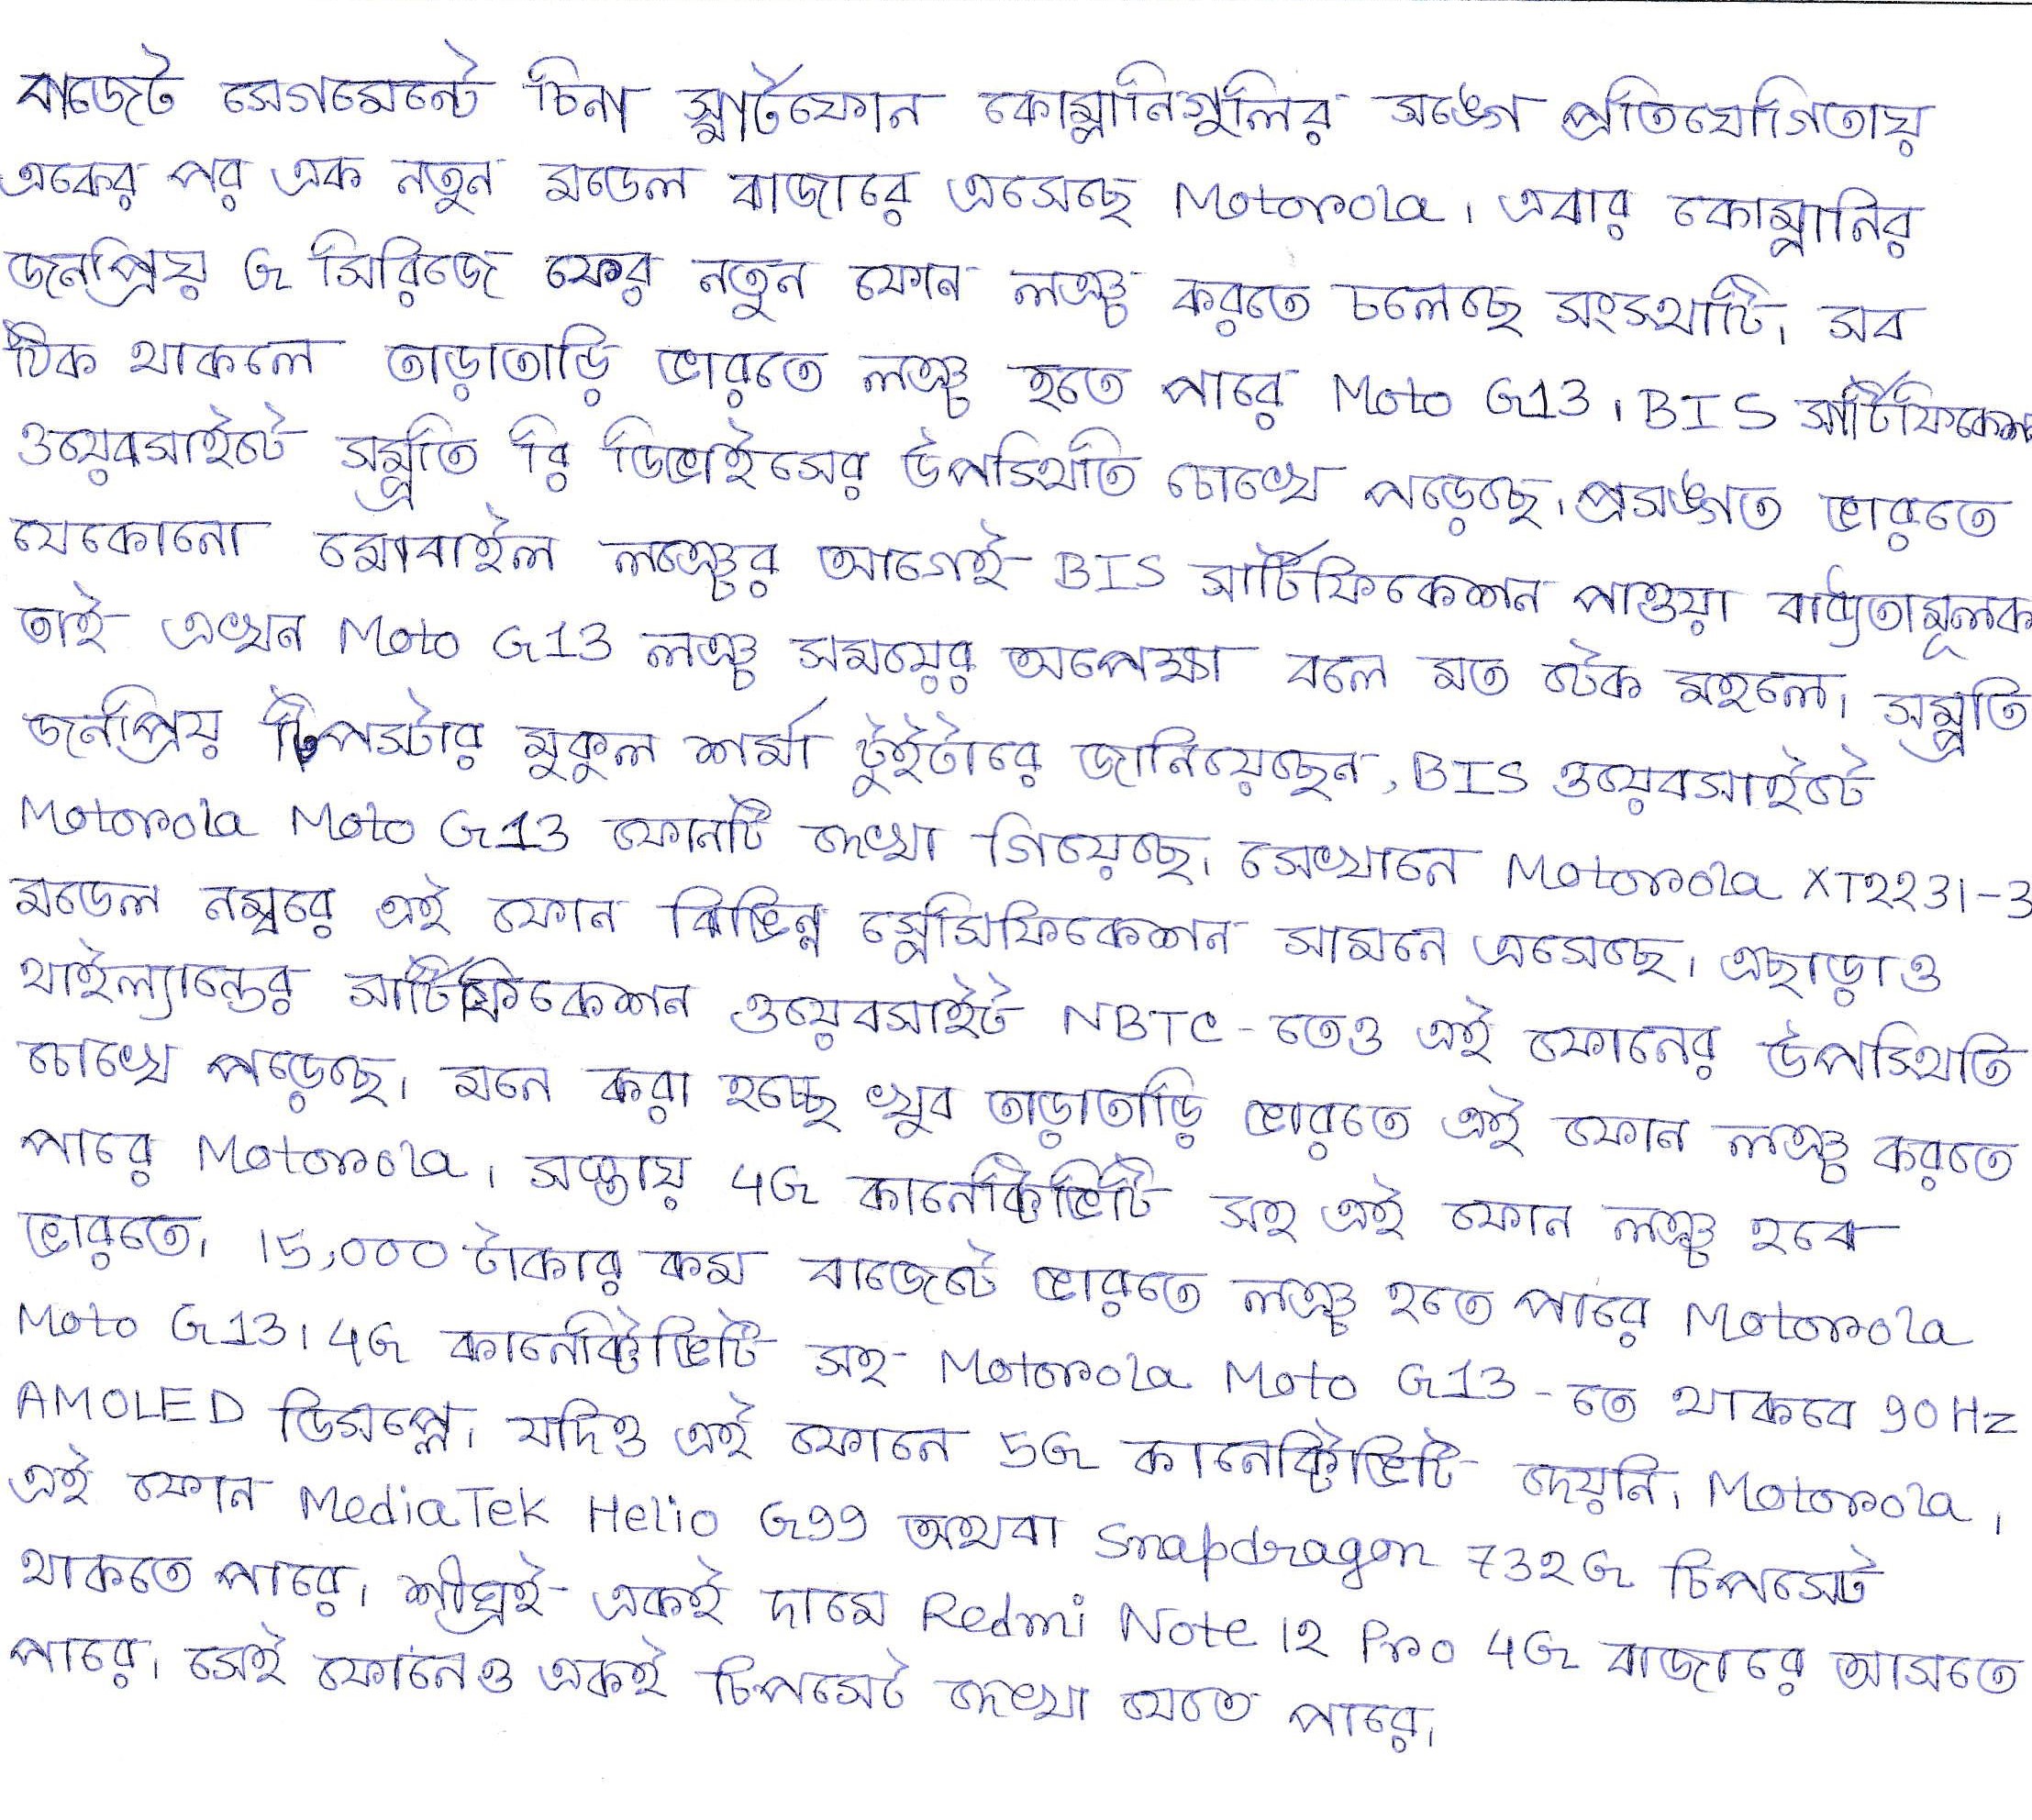 বাজেট সেগমেন্টে চিনা স্মার্টফোন কোম্পানিগুলির সঙ্গে প্রতিযোগিতায়
একের পর এক নতুন মডেল বাজারে এসেছে Motorola। এবার কোম্পানির
জনপ্রিয় G সিরিজে ফের নতুন ফোন লঞ্চ করতে চলেছে সংস্থাটি। সব
ঠিক থাকলে তাড়াতাড়ি ভারতে লঞ্চ হতে পারে Moto G13। BIS সার্টিফিকেশন
ওয়েবসাইটে সম্প্রতি রি ডিভাইসের উপস্থিতি চোখে পড়েছে। প্রসঙ্গত ভারতে
যেকোনো মোবাইল লঞ্চের আগেই BIS সার্টিফিকেশন পাওয়া বাধ্যতামূলক
তাই এখন Moto G13 লঞ্চ সময়ের অপেক্ষা বলে মত টেক মহলে। সম্প্রতি
জনপ্রিয় টিপস্টার মুকুল শর্মা টুইটারে জানিয়েছেন, BIS ওয়েবসাইটে
Motorola Moto G13 ফোনটি দেখা গিয়েছে। সেখানে Motorola XT2231-3
মডেল নম্বরে এই ফোন বিভিন্ন স্পেসিফিকেশন সামনে এসেছে। এছাড়াও
থাইল্যান্ডের সার্টিফিকেশন ওয়েবসাইট NBTC-তেও এই ফোনের উপস্থিতি
চোখে পড়েছে। মনে করা হচ্ছে খুব তাড়াতাড়ি ভারতে এই ফোন লঞ্চ করতে
পারে Motorola। সস্তায় 4G কানেক্টিভিটি সহ এই ফোন লঞ্চ হবে
ভারতে। 15,000 টাকার কম বাজেটে ভারতে লঞ্চ হতে পারে Motorola
Moto G13। 4G কানেক্টিভিটি সহ Motorola Moto G13-তে থাকবে 90Hz
AMOLED ডিসপ্লে। যদিও এই ফোনে 5G কানেক্টিভিটি দেয়নি। Motorola।
এই ফোন MediaTek Helio G99 অথবা Snapdragon 732G চিপসেট
থাকতে পারে। শীঘ্রই একই দামে Redmi Note 12 Pro 4G বাজারে আসতে
পারে। সেই ফোনেও একই চিপসেট দেখা যেতে পারে।